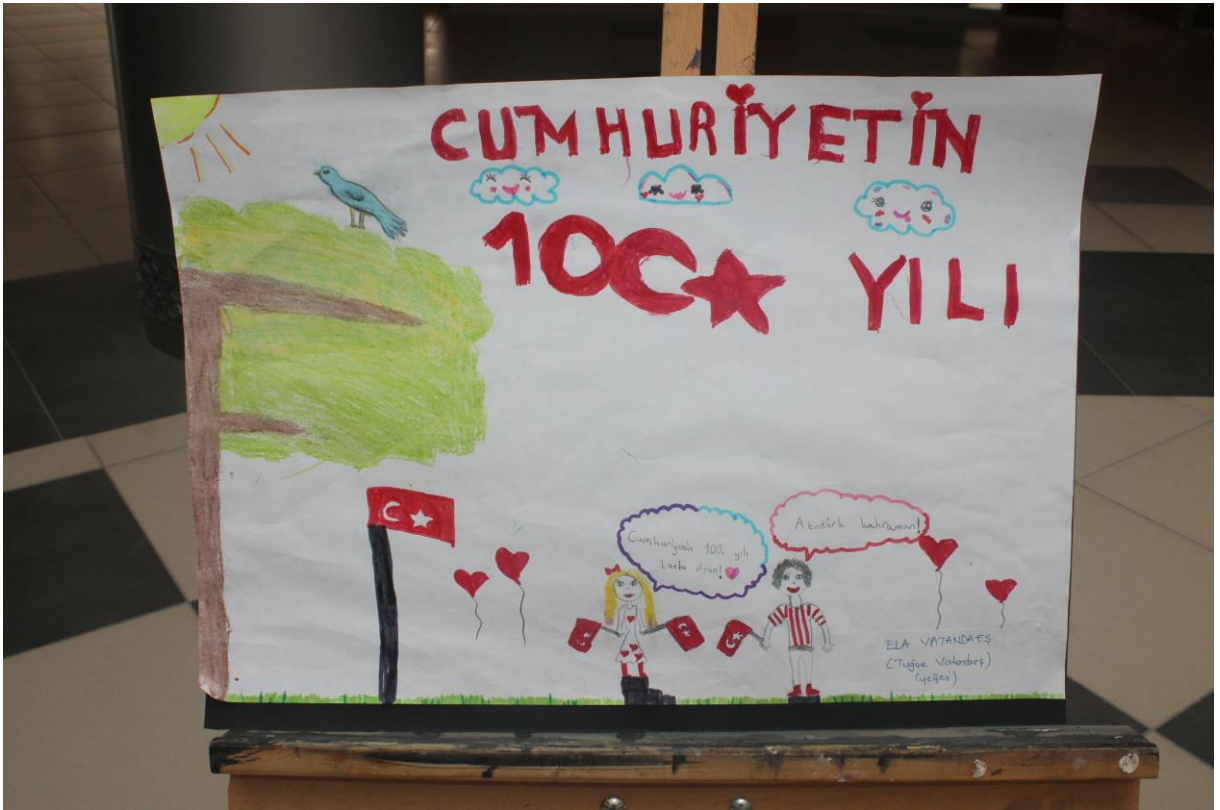 CUMHURİYETİN
100 YILI
Cumhuriyetin 100. yılı
kutlu olsun!
Atatürk kahraman!
ELA VATANDAEŞ
(Tuğçe Vatandaeş)
(yeğen)